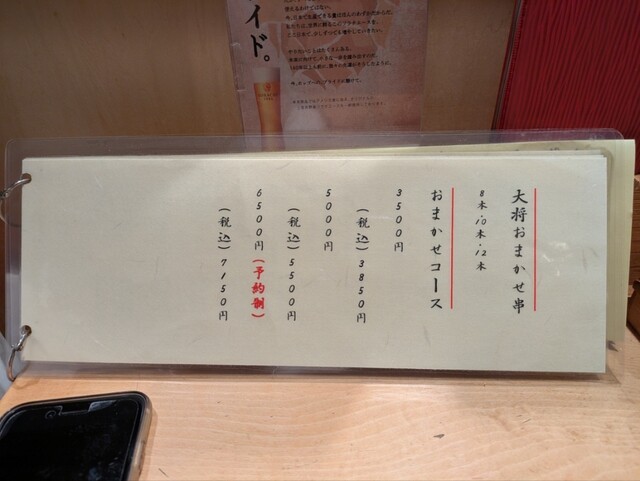 大将おまかせ串
8本・10本・12本
おまかせコース
3500円
(税込)3850円
5000円
(税込)5500円
6500円(予約制)
(税込)7150円
イド。